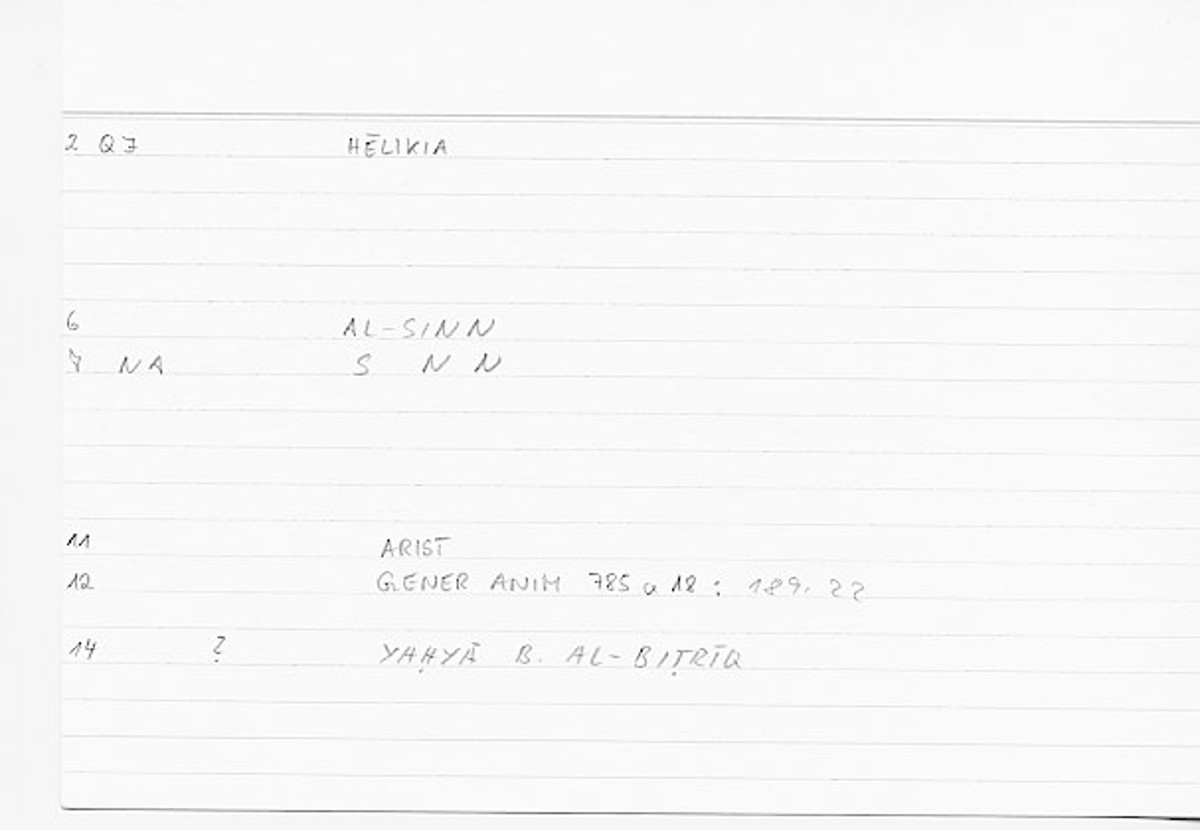 2 Q7 HĒLIKIA
6 AL-SINN
7 NA S N N
11 ARIST
12 GENER ANIM 785 a 18 : 189, 22
14 ? YAḤYĀ B. AL-BIṬRĪQ